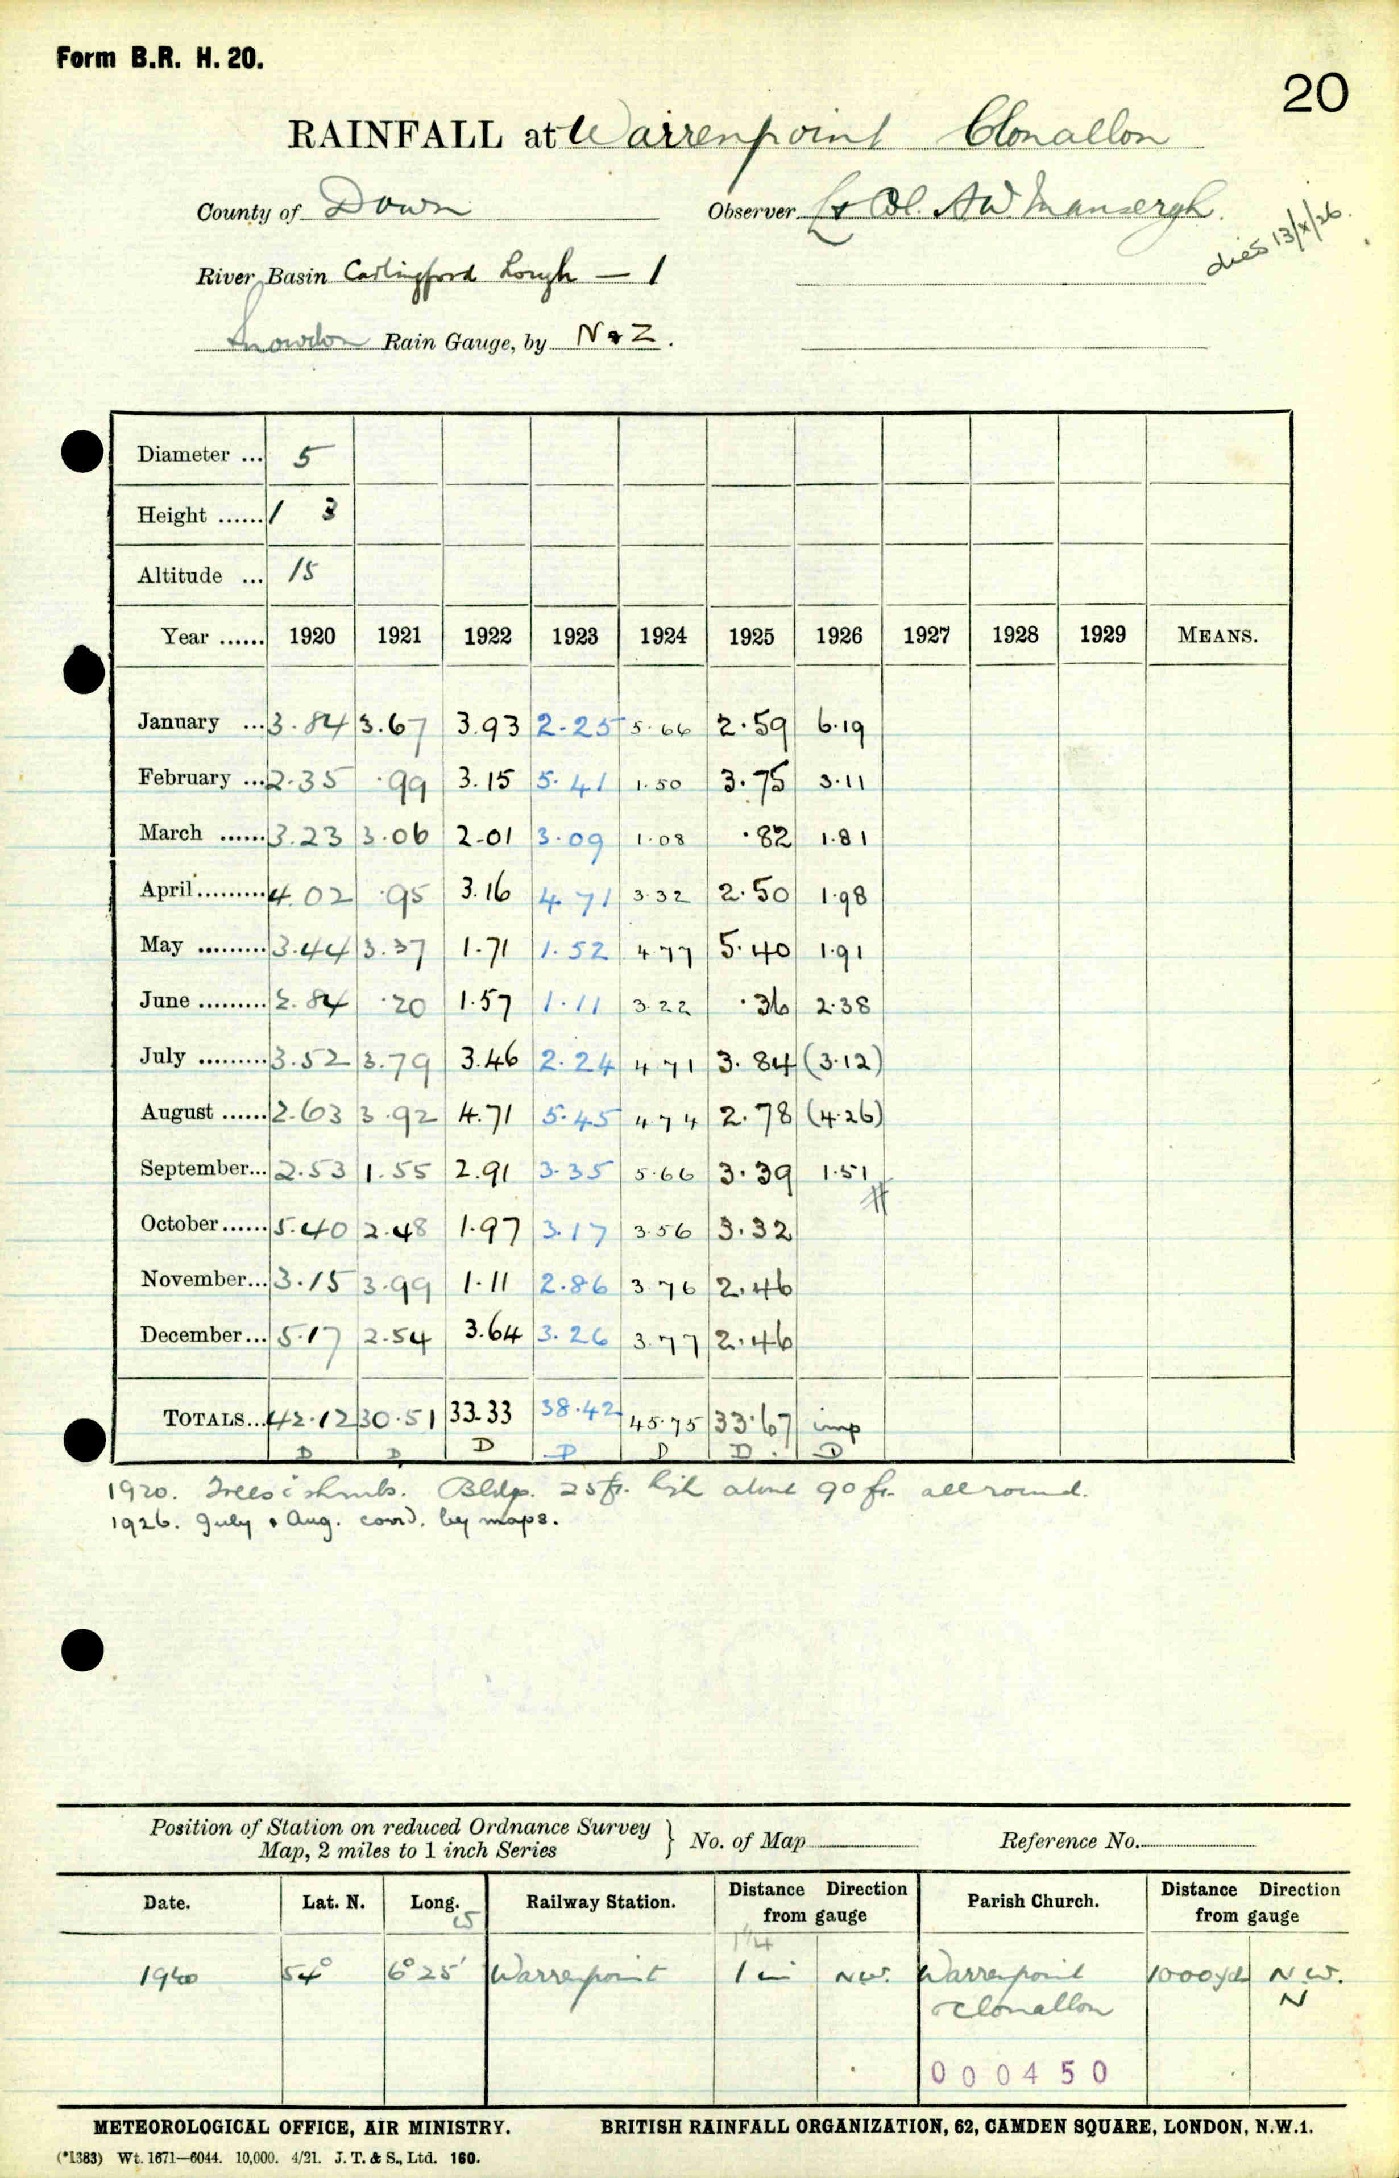 Form B.R. H. 20.
20
RAINFALL at Warrenpoint Clonallon
County of Down Observer Lt Col. A W Mansergh.
died 13/X/26.
River Basin Carlingford Lough — 1
Snowdon Rain Gauge, by N & Z.
Diameter ... 5
Height ...... 1 3
Altitude ... 15
Year ...... 1920 1921 1922 1923 1924 1925 1926 1927 1928 1929 MEANS.
January ... 3.84 3.67 3.93 2.25 5.66 2.59 6.19
February ... 2.35 .99 3.15 5.41 1.50 3.75 3.11
March ...... 3.23 3.06 2.01 3.09 1.08 .82 1.81
April ......... 4.02 .95 3.16 4.71 3.32 2.50 1.98
May ......... 3.44 3.37 1.71 1.52 4.77 5.40 1.91
June ......... 2.84 .20 1.57 1.11 3.22 .36 2.38
July ......... 3.52 3.79 3.46 2.24 4.71 3.84 (3.12)
August ...... 2.63 3.92 4.71 5.45 4.74 2.78 (4.26)
September... 2.53 1.55 2.91 3.35 5.66 3.39 1.51
October...... 5.40 2.48 1.97 3.17 3.56 3.32
November... 3.15 3.99 1.11 2.86 3.76 2.46
December... 5.17 2.54 3.64 3.26 3.77 2.46
TOTALS... 42.12 30.51 33.33 38.42 45.75 33.67 imp
D D D D D D D
1920. Trees & shrubs. Bldgs. 25 ft. high about 90 ft. all round.
1926. July & Aug. by maps.
Position of Station on reduced Ordnance Survey
Map, 2 miles to 1 inch Series } No. of Map Reference No.
Date. Lat. N. Long. Railway Station. Distance Direction from gauge Parish Church. Distance Direction from gauge
15 1¼
54° 6° 25' Warrenpoint 1 m NW. Warrenpoint 1000 yd N.W.
Clonallon N
000450
METEOROLOGICAL OFFICE, AIR MINISTRY. BRITISH RAINFALL ORGANIZATION, 62, CAMDEN SQUARE, LONDON, N.W.1.
(*1383) Wt. 1671—6044. 10,000. 4/21. J. T. & S., Ltd. 160.